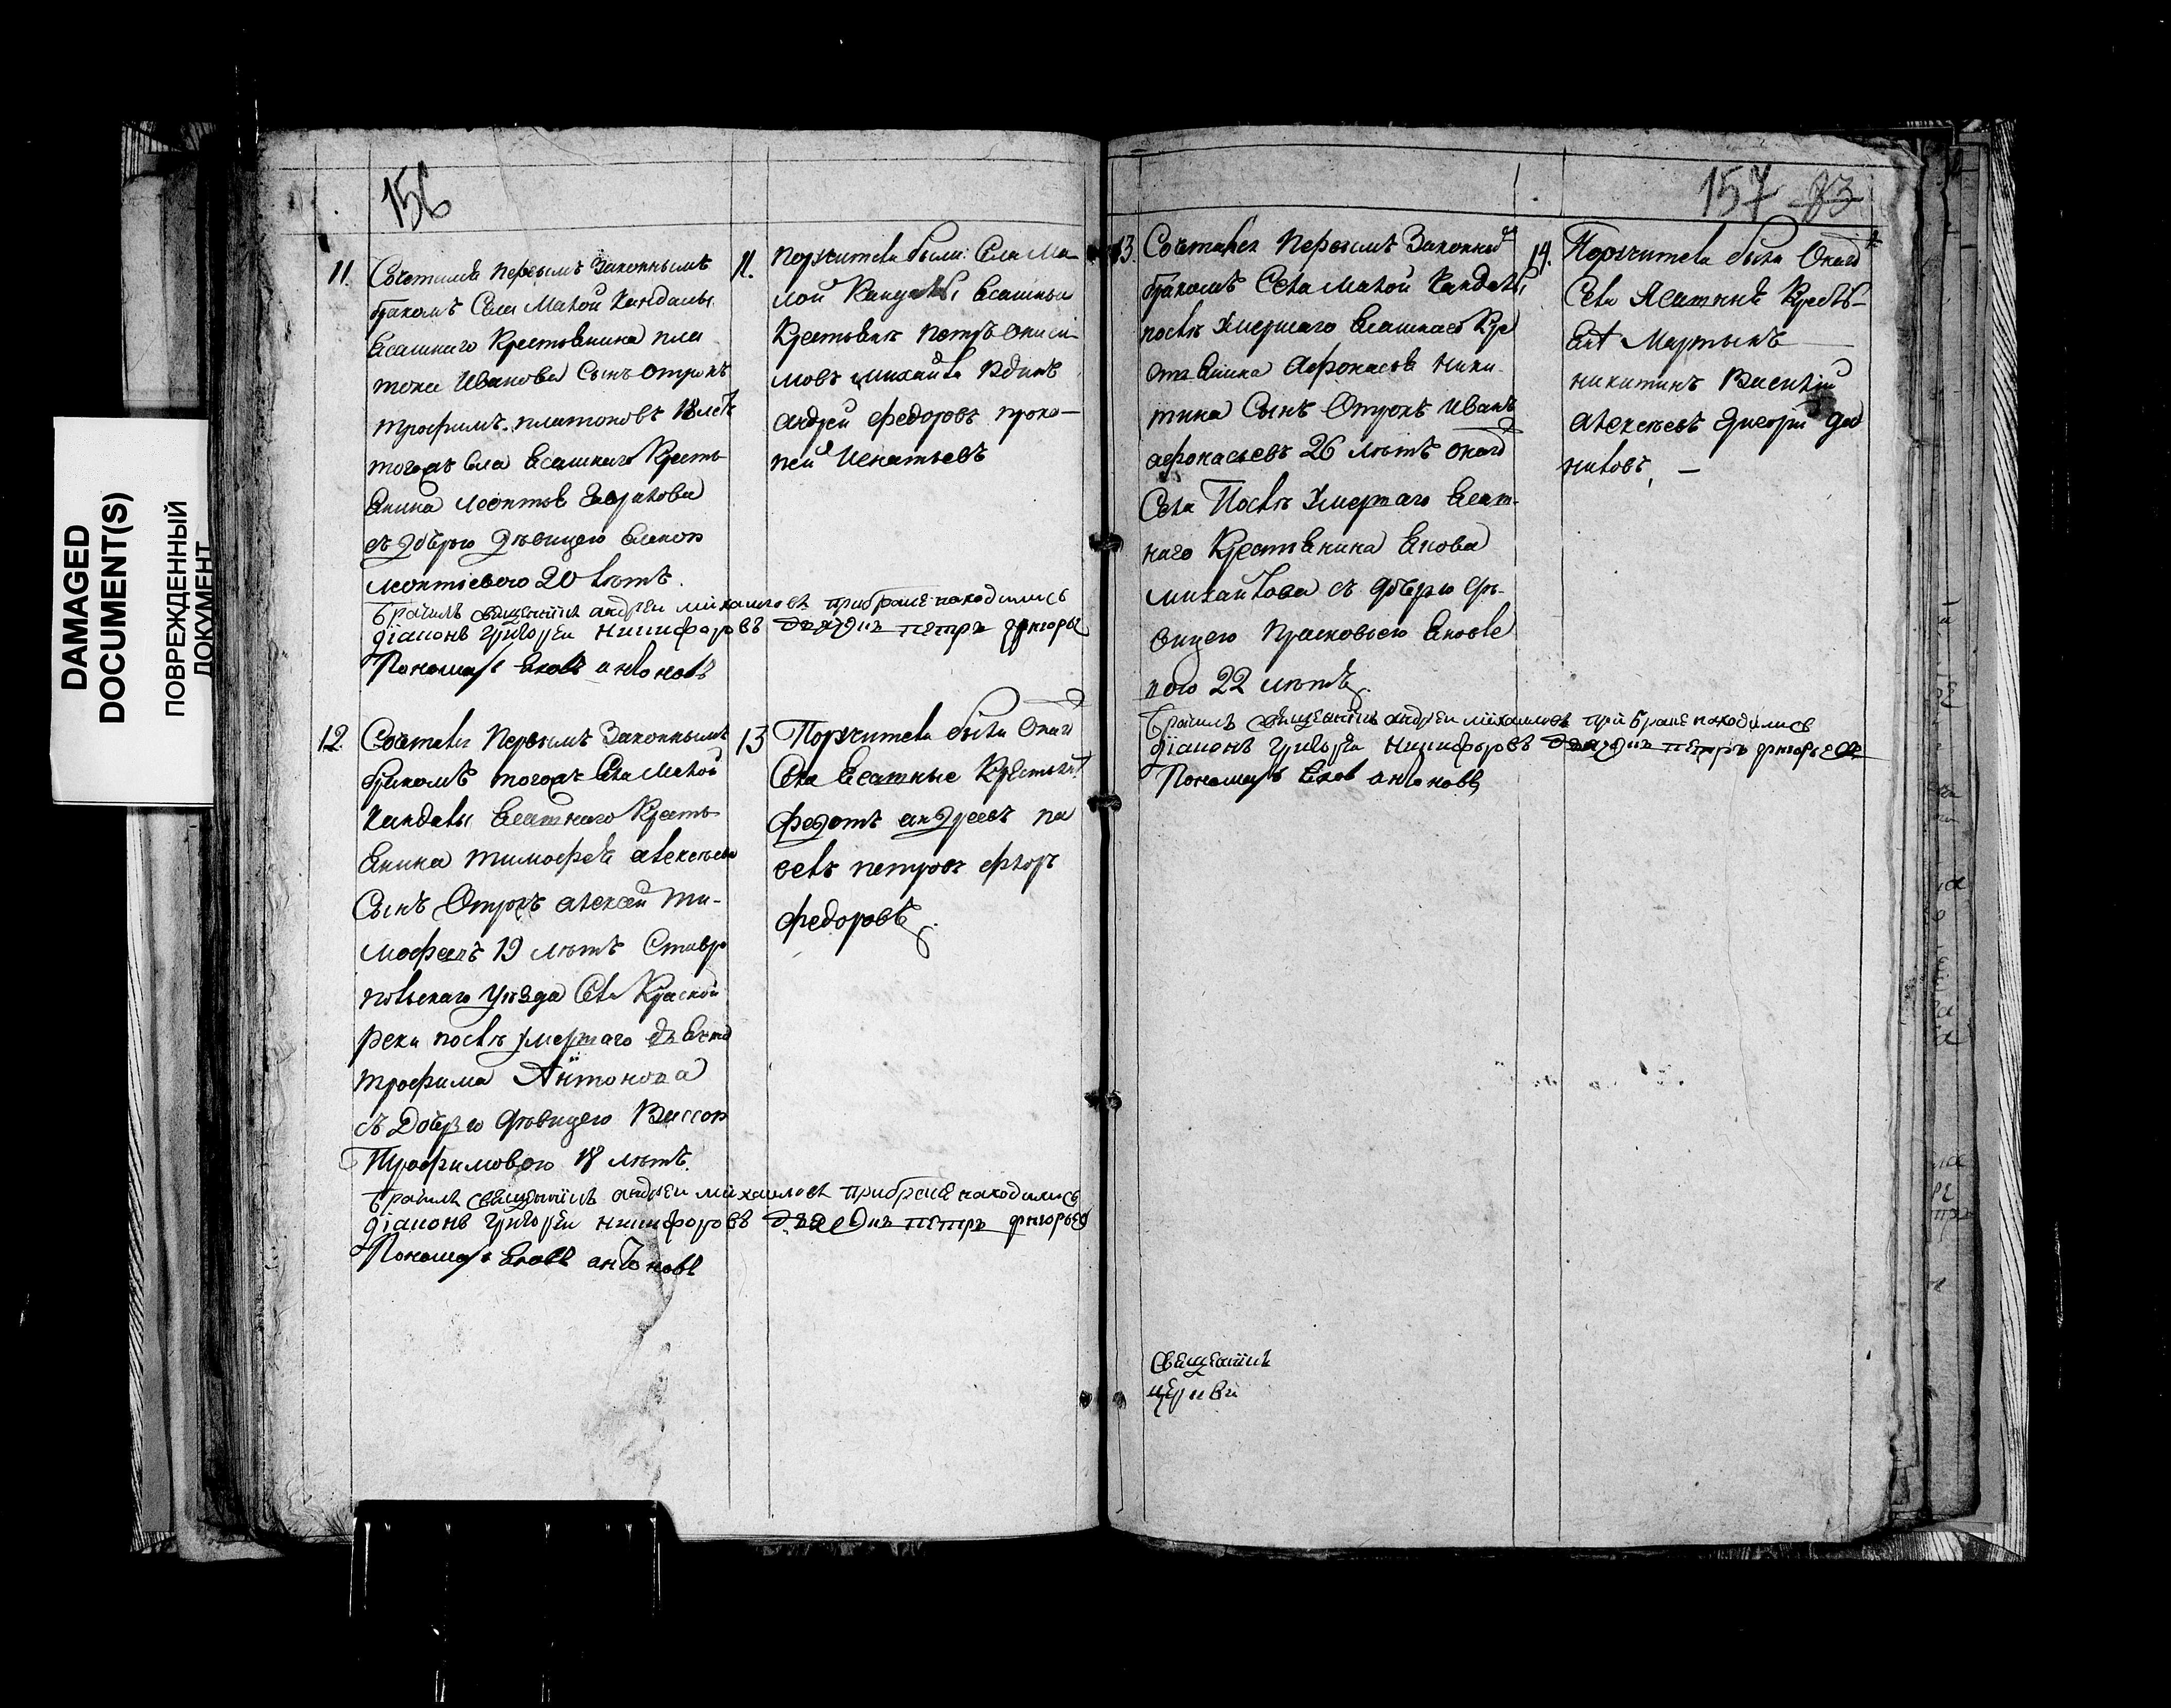 DAMAGED
DOCUMENT(S)
ПОВРЕЖДЕННЫЙ
ДОКУМЕНТ
156
11.
Сочетался первымъ Законнымъ
бракомъ Села Малой Кандалы
Ясашнаго Крестьянина пла
тона Иванова Сынъ отрокъ
трофимъ платоновъ 18 летъ
тогожъ села Ясашнаго Кресть
янина леонтья
съ дочерью девицею
леонтіевою 20 летъ.
Брачилъ священникъ андрей михаиловъ при браке находились
діаконъ григорей никифоровъ дьячокъ петръ григорье
Пономарь Яковъ антоновъ
11.
поручители были: Села Ма
лой Кандалы Ясашныя
Крестьяне петръ
михаила
андрей федоровъ проко
пей Игнатьевъ
12.
Сочетался Первымъ Законнымъ
бракомъ тогожъ Села Малой
Кандалы Ясашнаго Кресть
янина тимофея алексеева
Сынъ Отрокъ алексей Ти
мофеевъ 19 летъ Ставро
польскаго уезда Села Красной
реки после умершаго дьячка
трофима Антонова
съ дочерью девицею Вассою
Трофимовою 18 летъ.
Брачилъ священникъ андрей михаиловъ при браке находились
діаконъ григорей никифоровъ дьячокъ петръ григорьев
Пономарь Яковъ антоновъ
13
Поручители были Онаго
Села Ясашные Крестьяня
федотъ андреевъ па
велъ петровъ флоръ
федоровъ.
157 83
13.
Сочтался Первымъ Законным
бракомъ Села Малой Кандалы
после умершаго Ясашнаго Кре
стьянина Афонасья Ники
тина Сынъ Отрокъ Иванъ
афонасьевъ 26 летъ онаго
Села После умершаго Ясаш
наго Крестьянина Якова
михайлова съ дочерью де
вицею Прасковьею Яковле
вою 22 летъ.
Брачилъ священникъ андрей михаиловъ при браке находились
діаконъ григорей никифоровъ дьячокъ петръ григорьев
Пономарь Яков антоновъ
14.
Поручители были Онаго
Села Ясашныя Кресть
яня Мартынъ
никитинъ Василий
алексеевъ Григори Дад
ниловъ, —
Священникъ
церкви